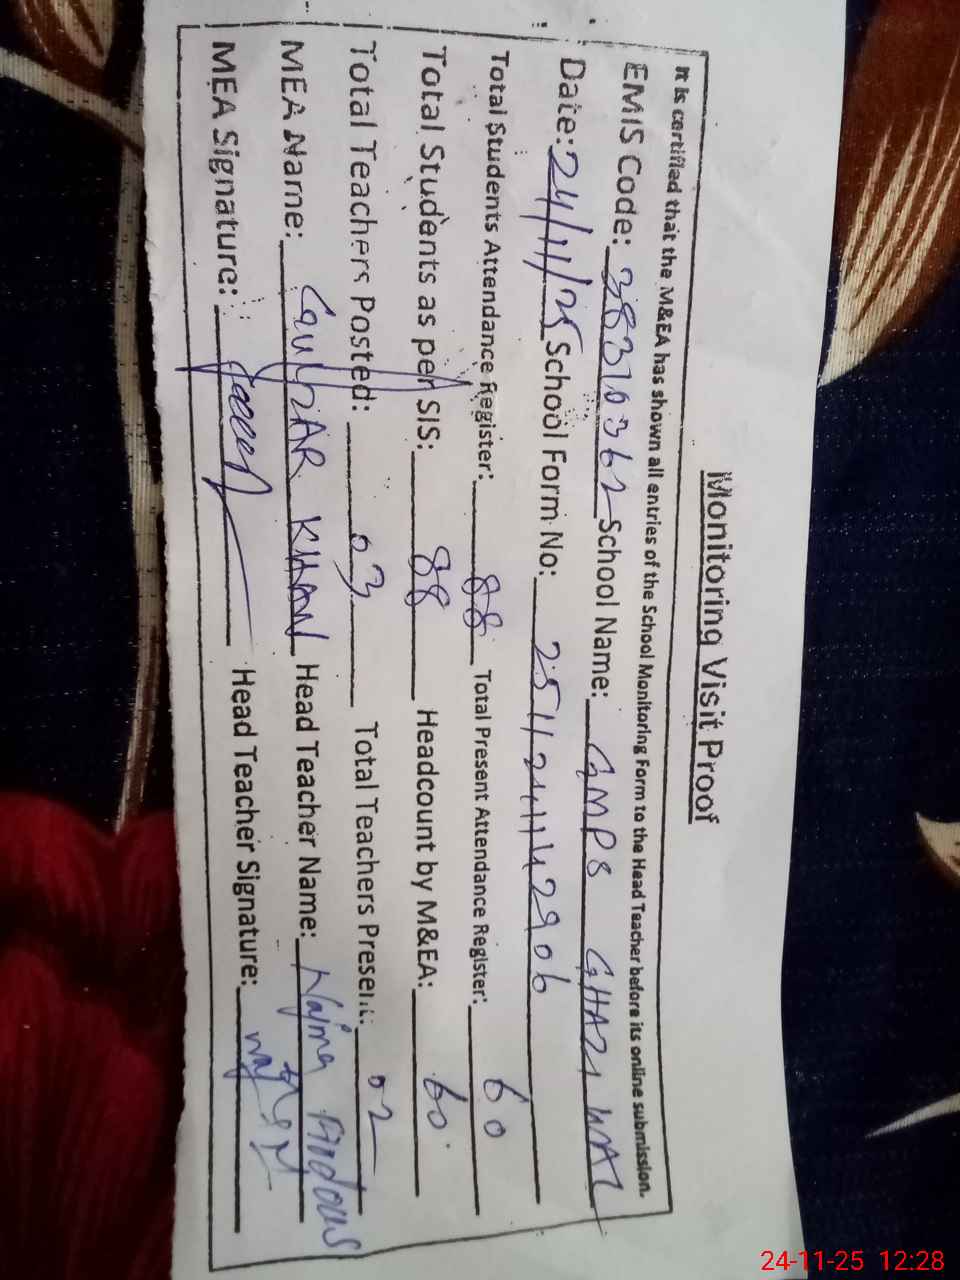 Monitoring Visit Proof
It is certified that the M&EA has shown all entries of the School Monitoring Form to the Head Teacher before its online submission.
EMIS Code: 38310362 School Name: GMPS GHAZI
Date: 24/11/25 School Form No: 251124142906
Total Students Attendance Register: 88 Total Present Attendance Register: 60
Total Students as per SIS: 88 Headcount by M&EA: 60
Total Teachers Posted: 03 Total Teachers Present: 02
MEA Name: GulZAR KHAN Head Teacher Name: Najma Firdous
MEA Signature: Head Teacher Signature:
24-11-25 12:28